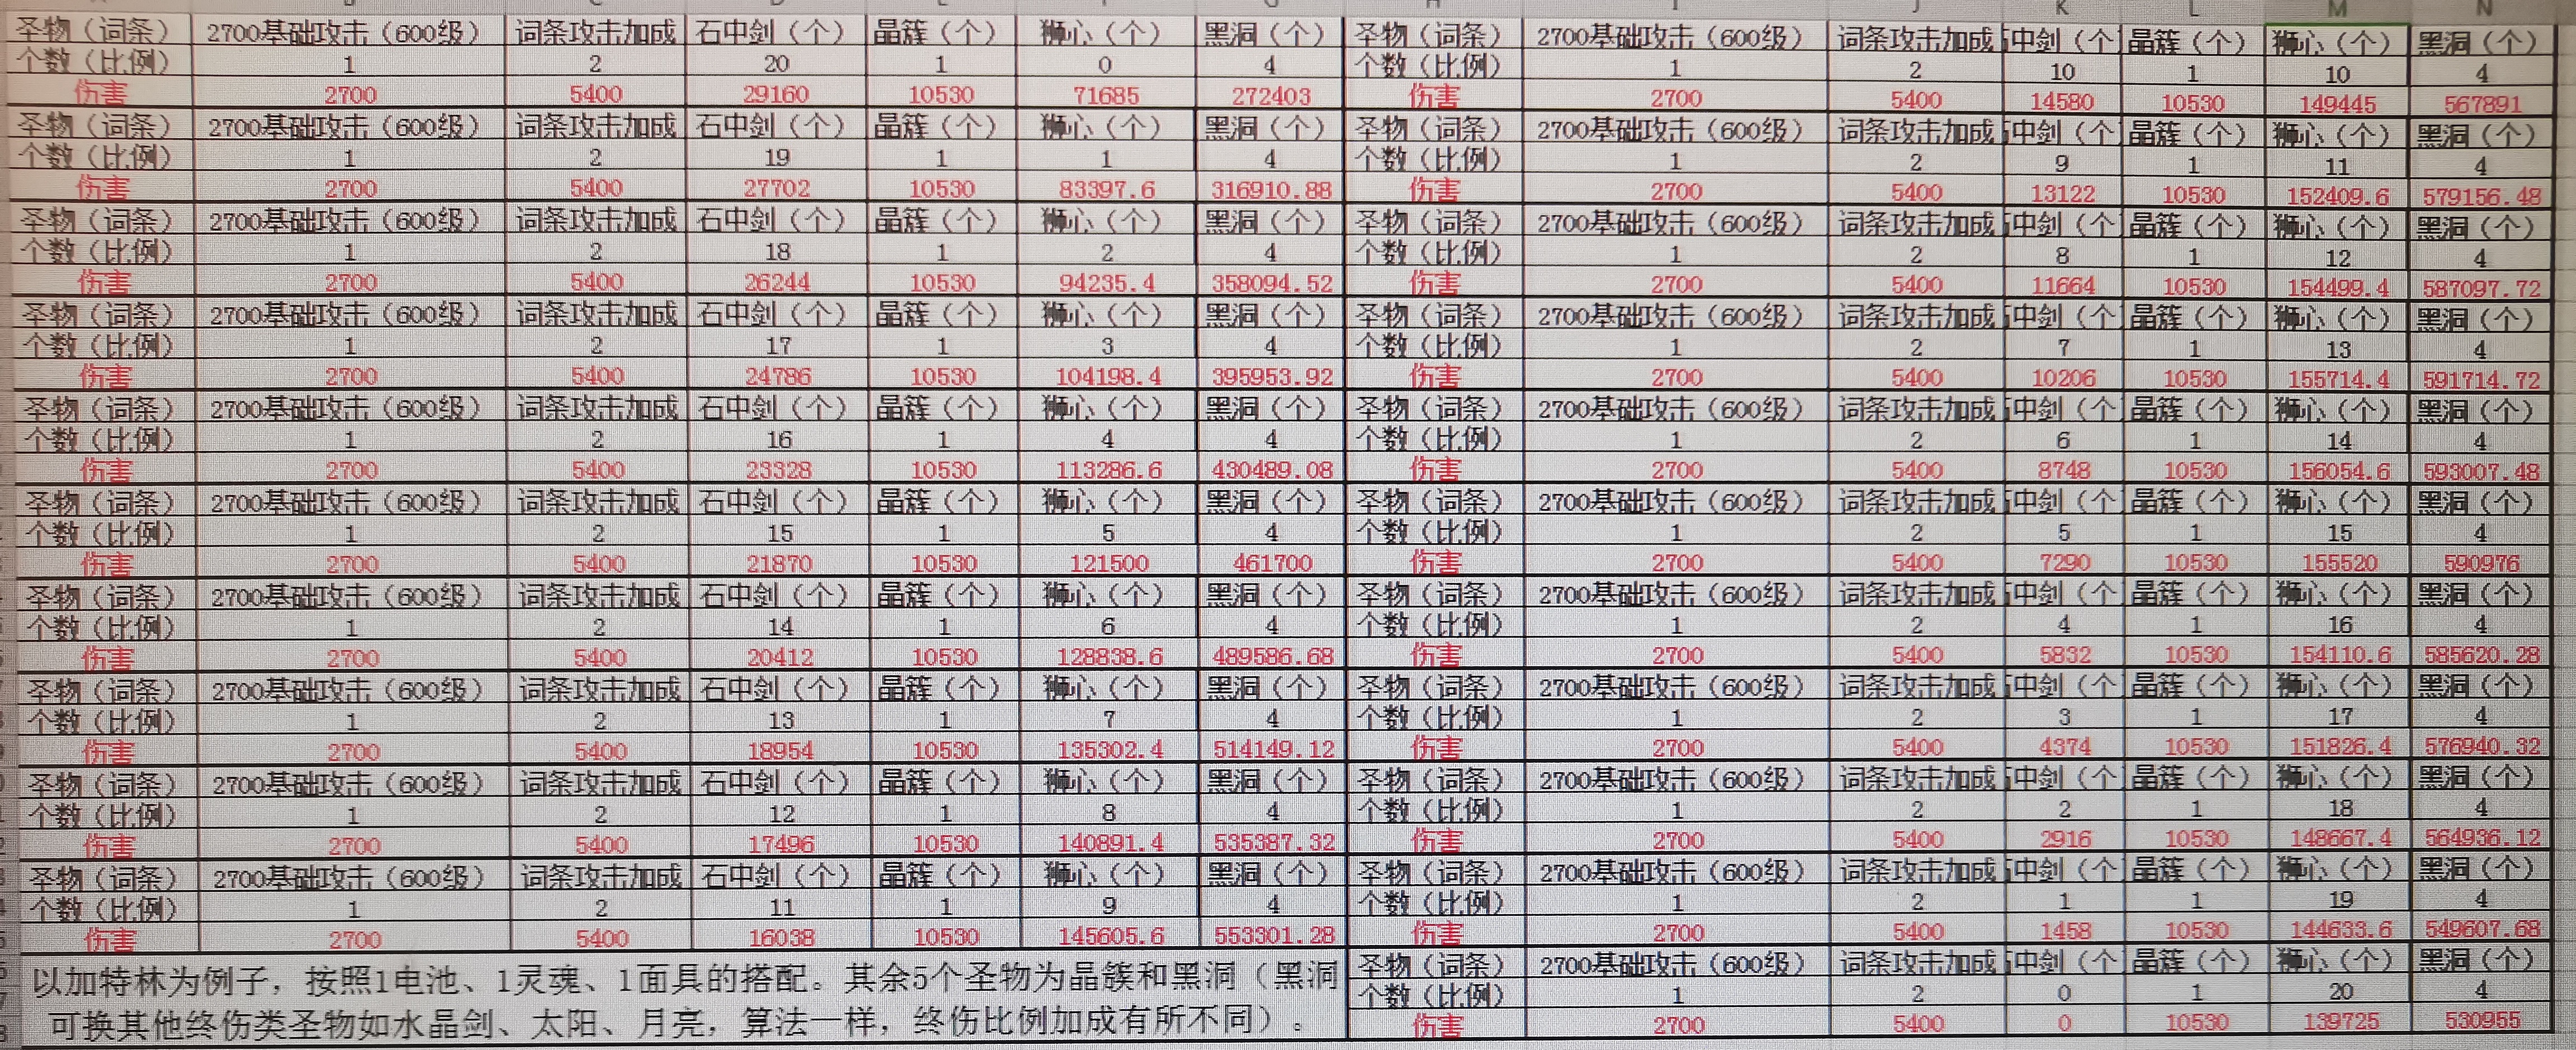 圣物（词条） 2700基础攻击（600级） 词条攻击加成 石中剑（个） 晶簇（个） 狮心（个） 黑洞（个） 圣物（词条） 2700基础攻击（600级） 词条攻击加成 中剑（个 晶簇（个） 狮心（个） 黑洞（个）
个数（比例） 1 2 20 1 0 4 个数（比例） 1 2 10 1 10 4
伤害 2700 5400 29160 10530 71685 272403 伤害 2700 5400 14580 10530 149445 567891
圣物（词条） 2700基础攻击（600级） 词条攻击加成 石中剑（个） 晶簇（个） 狮心（个） 黑洞（个） 圣物（词条） 2700基础攻击（600级） 词条攻击加成 中剑（个 晶簇（个） 狮心（个） 黑洞（个）
个数（比例） 1 2 19 1 1 4 个数（比例） 1 2 9 1 11 4
伤害 2700 5400 27702 10530 83397.6 316910.88 伤害 2700 5400 13122 10530 152409.6 579156.48
圣物（词条） 2700基础攻击（600级） 词条攻击加成 石中剑（个） 晶簇（个） 狮心（个） 黑洞（个） 圣物（词条） 2700基础攻击（600级） 词条攻击加成 中剑（个 晶簇（个） 狮心（个） 黑洞（个）
个数（比例） 1 2 18 1 2 4 个数（比例） 1 2 8 1 12 4
伤害 2700 5400 26244 10530 94235.4 358094.52 伤害 2700 5400 11664 10530 154499.4 587097.72
圣物（词条） 2700基础攻击（600级） 词条攻击加成 石中剑（个） 晶簇（个） 狮心（个） 黑洞（个） 圣物（词条） 2700基础攻击（600级） 词条攻击加成 中剑（个 晶簇（个） 狮心（个） 黑洞（个）
个数（比例） 1 2 17 1 3 4 个数（比例） 1 2 7 1 13 4
伤害 2700 5400 24786 10530 104198.4 395953.92 伤害 2700 5400 10206 10530 155714.4 591714.72
圣物（词条） 2700基础攻击（600级） 词条攻击加成 石中剑（个） 晶簇（个） 狮心（个） 黑洞（个） 圣物（词条） 2700基础攻击（600级） 词条攻击加成 中剑（个 晶簇（个） 狮心（个） 黑洞（个）
个数（比例） 1 2 16 1 4 4 个数（比例） 1 2 6 1 14 4
伤害 2700 5400 23328 10530 113286.6 430489.08 伤害 2700 5400 8748 10530 156054.6 593007.48
圣物（词条） 2700基础攻击（600级） 词条攻击加成 石中剑（个） 晶簇（个） 狮心（个） 黑洞（个） 圣物（词条） 2700基础攻击（600级） 词条攻击加成 中剑（个 晶簇（个） 狮心（个） 黑洞（个）
个数（比例） 1 2 15 1 5 4 个数（比例） 1 2 5 1 15 4
伤害 2700 5400 21870 10530 121500 461700 伤害 2700 5400 7290 10530 155520 590976
圣物（词条） 2700基础攻击（600级） 词条攻击加成 石中剑（个） 晶簇（个） 狮心（个） 黑洞（个） 圣物（词条） 2700基础攻击（600级） 词条攻击加成 中剑（个 晶簇（个） 狮心（个） 黑洞（个）
个数（比例） 1 2 14 1 6 4 个数（比例） 1 2 4 1 16 4
伤害 2700 5400 20412 10530 128838.6 489586.68 伤害 2700 5400 5832 10530 154110.6 585620.28
圣物（词条） 2700基础攻击（600级） 词条攻击加成 石中剑（个） 晶簇（个） 狮心（个） 黑洞（个） 圣物（词条） 2700基础攻击（600级） 词条攻击加成 中剑（个 晶簇（个） 狮心（个） 黑洞（个）
个数（比例） 1 2 13 1 7 4 个数（比例） 1 2 3 1 17 4
伤害 2700 5400 18954 10530 135302.4 514149.12 伤害 2700 5400 4374 10530 151826.4 576940.32
圣物（词条） 2700基础攻击（600级） 词条攻击加成 石中剑（个） 晶簇（个） 狮心（个） 黑洞（个） 圣物（词条） 2700基础攻击（600级） 词条攻击加成 中剑（个 晶簇（个） 狮心（个） 黑洞（个）
个数（比例） 1 2 12 1 8 4 个数（比例） 1 2 2 1 18 4
伤害 2700 5400 17496 10530 140891.4 535387.32 伤害 2700 5400 2916 10530 148667.4 564936.12
圣物（词条） 2700基础攻击（600级） 词条攻击加成 石中剑（个） 晶簇（个） 狮心（个） 黑洞（个） 圣物（词条） 2700基础攻击（600级） 词条攻击加成 中剑（个 晶簇（个） 狮心（个） 黑洞（个）
个数（比例） 1 2 11 1 9 4 个数（比例） 1 2 1 1 19 4
伤害 2700 5400 16038 10530 145605.6 553301.28 伤害 2700 5400 1458 10530 144633.6 549607.68
以加特林为例子，按照1电池、1灵魂、1面具的搭配。其余5个圣物为晶簇和黑洞（黑洞
可换其他终伤类圣物如水晶剑、太阳、月亮，算法一样，终伤比例加成有所不同）。
圣物（词条） 2700基础攻击（600级） 词条攻击加成 中剑（个 晶簇（个） 狮心（个） 黑洞（个）
个数（比例） 1 2 0 1 20 4
伤害 2700 5400 0 10530 139725 530955